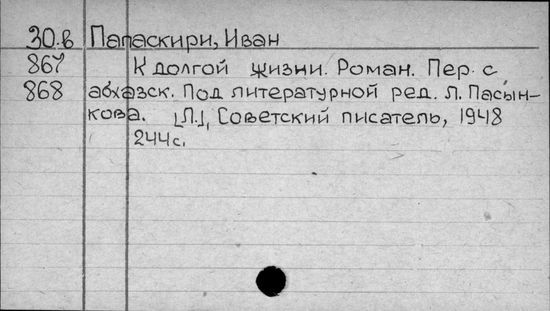 30.в Папаскири, Иван
867 К долгой жизни. Роман. Пер. с
868 абхазск. Под литературной ред. Л. Пасын-
кова. [Л.], Советский писатель, 1948
244с.